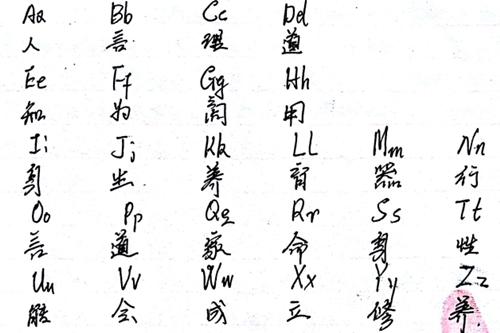 Aa Bb Cc Dd
人 理 道
Ee Ff Gg Hh
知 为 用
Ii Jj Kk Ll Mm Nn
身 坐 养 育 器 行
Oo Pp Qq Rr Ss Tt
道 家 命 身 性
Uu Vv Ww Xx Yy Zz
能 会 成 立 修 养